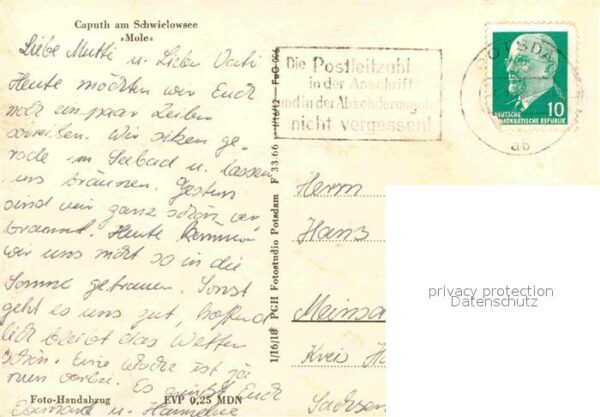 Caputh am Schwielowsee
»Mole«
Liebe Mutti u. Lieber Vati
Heute möchten wir Euch
noch ein paar Zeilen
schreiben. Wir sitzen ge-
rade im Seebad u. lassen
uns bräunen. Gestern
sind wir ganz schön ver-
brannt. Heute können
wir uns nicht so in die
Sonne getrauen. Sonst
geht es uns gut, hoffent
lich bleibt das Wetter
schön. Eine Woche ist ja
nun vorbei. Es grüßt Euch
u. Hannelore
Foto-Handabzug EVP 0,25 MDN
1/16/18 PGH Fotostudio Potsdam F 33/66 1/16/12 FuG 666
Die Postleitzahl
in der Anschrift
und in der Absenderangabe
nicht vergessen!
POTSDAM
10
DEUTSCHE
DEMOKRATISCHE REPUBLIK
ab
Herrn
Hans
Meinsd
Kreis H
Sachsen
privacy protection
Datenschutz